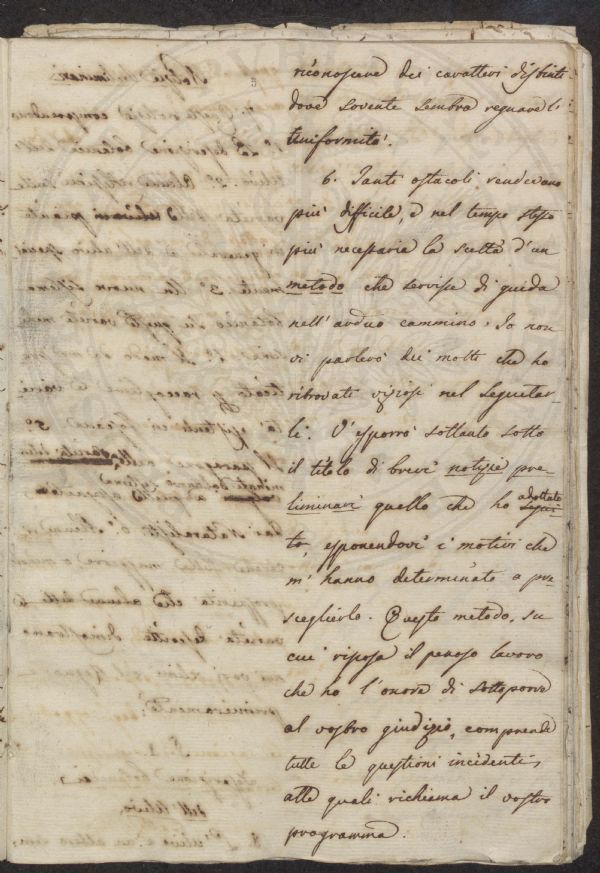 riconoscere dei caratteri distinti
dove sovente sembra regnare l'
uniformità.
6. Tanti ostacoli rendevano
più difficile, e nel tempo stesso
più necessaria la scelta d'un
metodo che servisse di guida
nell'arduo cammino. Io non
vi parlerò dei molti che ho
ritrovati viziosi nel seguitar-
li. V'esporrò soltanto sotto
il titolo di brevi notizie pre-
liminari quello che ho adottato
segui-
to, esponendovi i motivi che
m'hanno determinato a pre-
sceglierlo. Questo metodo, su
cui riposa il penoso lavoro
che ho l'onore di sottoporre
al vostro giudizio, comprende
tutte le questioni incidenti,
alle quali richiama il vostro
programma.